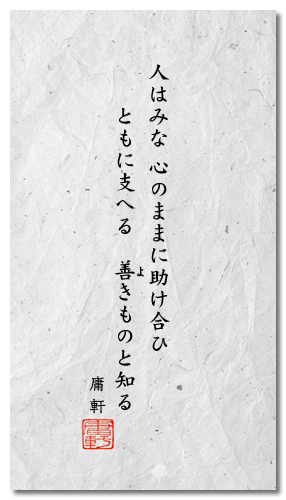 人はみな 心のままに助け合ひ
ともに支へる 善きものと知る
よ
庸軒